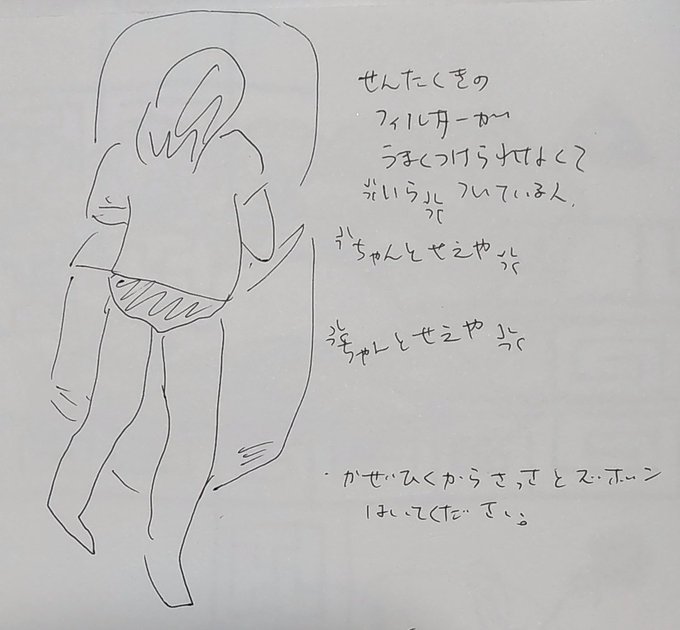 せんたくきの
フィルターが
うまくつけられなくて
💢いら💢ついている人
💢ちゃんとせえや💢
💢ちゃんとせえや💢
・かぜひくからさっさとズボン
はいてください。